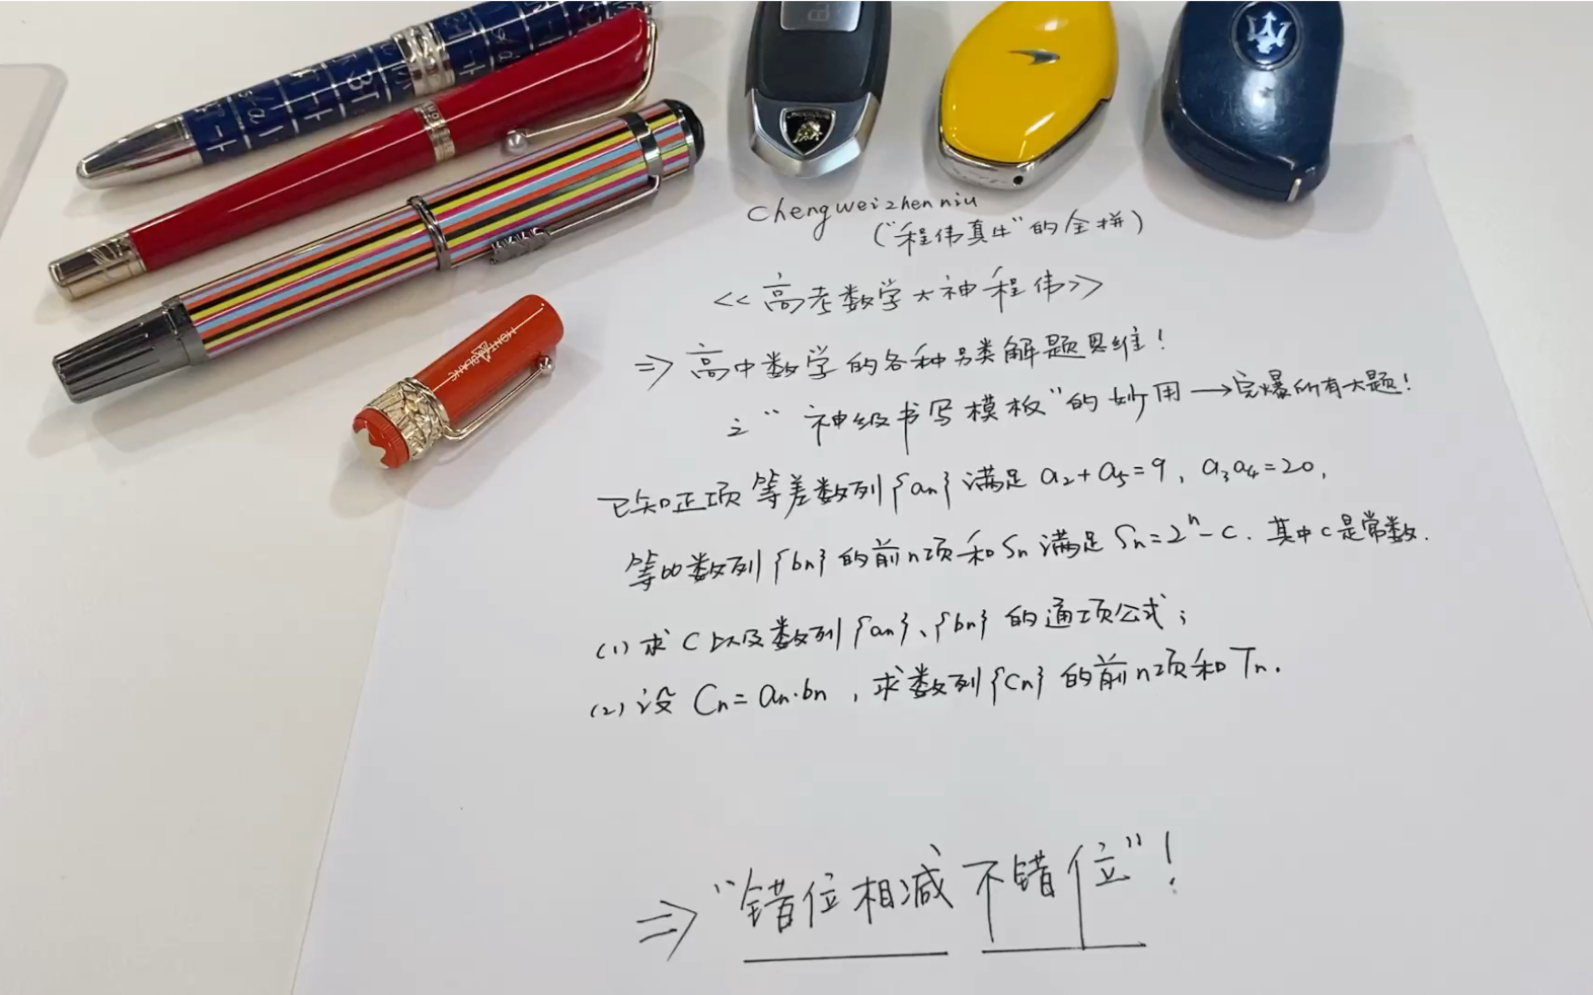 MONTBLANC
chengweizhenniu
(“程伟真牛”的全拼)
<<高考数学大神程伟>>
=> 高中数学的各种另类解题思维!
之“神级书写模板”的妙用→完爆所有大题!
已知正项等差数列{an}满足a₂+a₅=9, a₃a₄=20,
等比数列{bn}的前n项和Sn满足Sn=2ⁿ-c. 其中c是常数.
(1)求c以及数列{an}、{bn}的通项公式;
(2)设Cn=an·bn,求数列{Cn}的前n项和Tn.
=>“错位相减不错位”!